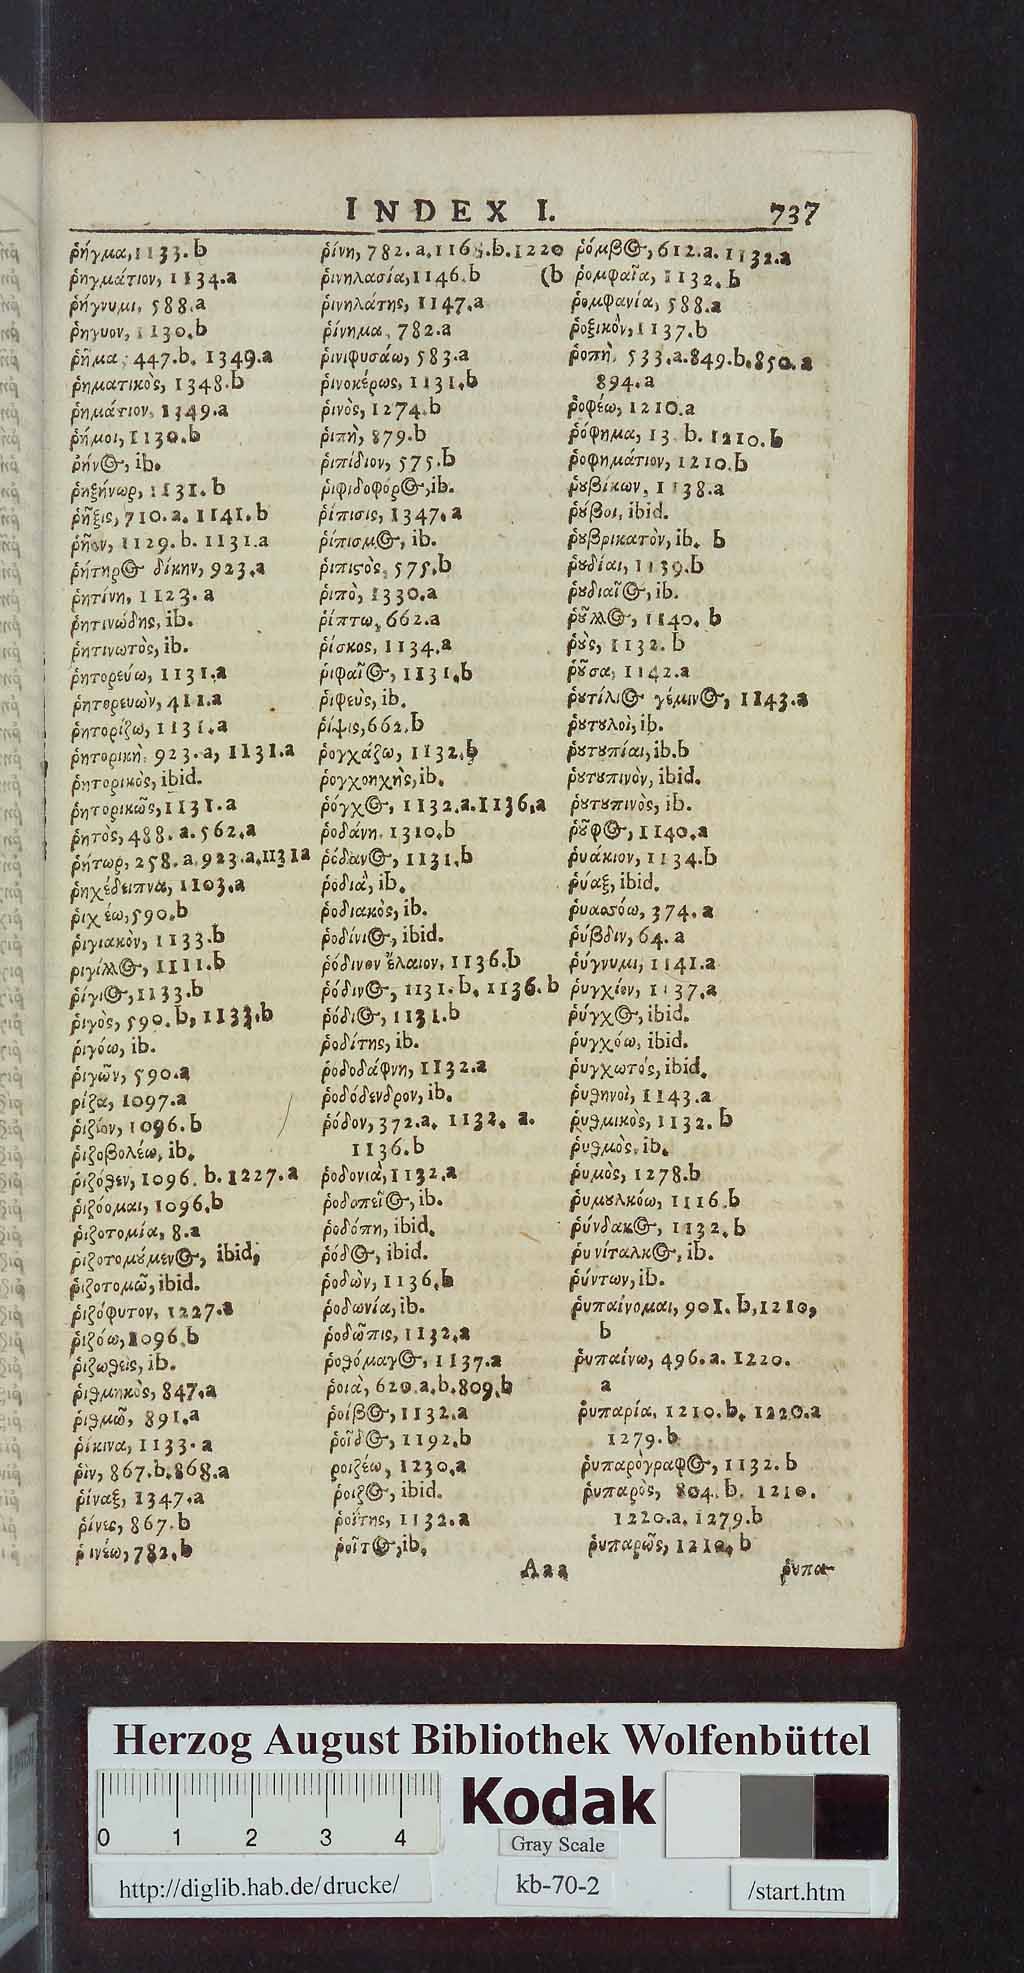 INDEX I. 737
ῥήγμα, 1133.b
ῥηγμάτιον, 1134.a
ῥήγνυμι, 588.a
ῥηγυον, 1130.b
ῥῆμα, 447.b. 1349.a
ῥηματικὸς, 1348.b
ῥημάτιον, 1349.a
ῥήμοι, 1130.b
ῥήνος, ib.
ῥηξήνωρ, 1131.b
ῥῆξις, 710.a. 1141.b
ῥῆον, 1129.b. 1131.a
ῥήτηρος δίκην, 923.a
ῥητίνη, 1123.a
ῥητινώδης, ib.
ῥητινωτὸς, ib.
ῥητορεύω, 1131.a
ῥητορευὼν, 411.a
ῥητορίζω, 1131.a
ῥητορικὴ, 923.a, 1131.a
ῥητορικὸς, ibid.
ῥητορικῶς, 1131.a
ῥητὸς, 488.a. 562.a
ῥήτωρ, 258.a. 923.a. 1131a
ῥηχέδειπνα, 1103.a
ῥιχέω, 590.b
ῥιγιακὸν, 1133.b
ριγίλλος, 1111.b
ῥίγιος, 1133.b
ῥιγὸς, 590.b, 1133.b
ῥιγόω, ib.
ῥιγῶν, 590.a
ρίζα, 1097.a
ῥιζίον, 1096.b
ῥιζοβολέω, ib.
ῥιζόθεν, 1096.b. 1227.a
ῥιζόομαι, 1096.b
ῥιζοτομία, 8.a
ῥιζοτομούμενος, ibid.
ῥιζοτομῶ, ibid.
ῥιζόφυτον, 1227.a
ῥιζόω, 1096.b
ῥιζωθεὶς, ib.
ῥιθμηκὸς, 847.a
ῥιθμῶ, 891.a
ῥίκινα, 1133.a
ῥὶν, 867.b. 868.a
ῥίναξ, 1347.a
ῥίνες, 867.b
ῥινέω, 782.b
ῥίνη, 782.a. 1165.b. 1220
ῥινηλασία, 1146.b (b
ῥινηλάτης, 1147.a
ῥίνημα, 782.a
ῥινιφυσάω, 583.a
ῥινοκέρως, 1131.b
ῥινὸς, 1274.b
ῥιπὴ, 879.b
ῥιπίδιον, 575.b
ῥιφιδοφόρος, ib.
ῥίπισις, 1347.a
ῥίπισμος, ib.
ῥιπιστὸς, 575.b
ῥιπὸ, 1330.a
ῥίπτω, 662.a
ῥίσκος, 1134.a
ῥιφαῖος, 1131.b
ῥιφεὺς, ib.
ῥίψις, 662.b
ῥογχάζω, 1132.b
ῥογχοηχὴς, ib.
ῥόγχος, 1132.a. 1136.a
ῥοδάνη, 1310.b
ῥόδανος, 1131.b
ῥοδιὰ, ib.
ῥοδιακὸς, ib.
ῥοδίνιος, ibid.
ῥόδινον ἔλαιον, 1136.b
ῥόδινος, 1131.b. 1136.b
ῥόδιος, 1131.b
ῥοδίτης, ib.
ῥοδοδάφνη, 1132.a
ῥοδόδενδρον, ib.
ῥόδον, 372.a. 1132. a.
1136.b
ῥοδονιὰ, 1132.a
ῥοδοπεῖος, ib.
ῥοδόπη, ibid.
ῥόδος, ibid.
ῥοδὼν, 1136.b
ῥοδωνία, ib.
ῥοδῶπις, 1132.a
ῥοθόμαγος, 1137.a
ῥοιὰ, 620.a.b. 809.b
ῥοίβος, 1132.a
ῥοῖδος, 1192.b
ροιζέω, 1230.a
ῥοιζος, ibid.
ῥοίτης, 1132.a
ῥοῖτος, ib.
ῥόμβος, 612.a. 1132.a
ῥομφαῖα, 1132.b
ῥομφανία, 588.a
ῥοξικὸν, 1137.b
ῥοπὴ, 533.a. 849.b. 850.a
894.a
ῥοφέω, 1210.a
ῥόφημα, 13 b. 1210.b
ῥοφημάτιον, 1210.b
ῥουβίκων, 1138.a
ῥούβοι, ibid.
ῥουβρικατὸν, ib. b
ῥουδίαι, 1139.b
ῥουδιαῖος, ib.
ῥοῦλλος, 1140. b
ῥοὺς, 1132.b
ῥοῦσα, 1142.a
ῥουτίλιος γέμινος, 1143.a
ῥουτουλοὶ, ib.
ῥουτουπίαι, ib.b
ῥουτουπινὸν, ibid.
ῥουτουπινὸς, ib.
ῥοῦφος, 1140.a
ῥυάκιον, 1134.b
ῥύαξ, ibid.
ῥυασσόω, 374.a
ῥύβδιν, 64.a
ῥύγνυμι, 1141.a
ῥυγχίον, 1137.a
ῥύγχος, ibid.
ῥυγχόω, ibid.
ῥυγχωτός, ibid.
ῥυθηνοὶ, 1143.a
ῥυθμικὸς, 1132.b
ῥυθμὸς, ib.
ῥυμὸς, 1278.b
ῥυμουλκόω, 1116.b
ῥύνδακος, 1132.b
ῥυνίταλκος, ib.
ῥύντων, ib.
ῥυπαίνομαι, 901.b, 1210,
b
ῥυπαίνω, 496.a. 1220.
a
ῥυπαρία, 1210.b. 1220.a
1279.b
ῥυπαρόγραφος, 1132.b
ῥυπαρὸς, 804.b. 1210.
1220.a. 1279.b
ῥυπαρῶς, 1210.b
Aaa ῥυπα-
Herzog August Bibliothek Wolfenbüttel
0 1 2 3 4
Kodak
Gray Scale
http://diglib.hab.de/drucke/ kb-70-2 /start.htm